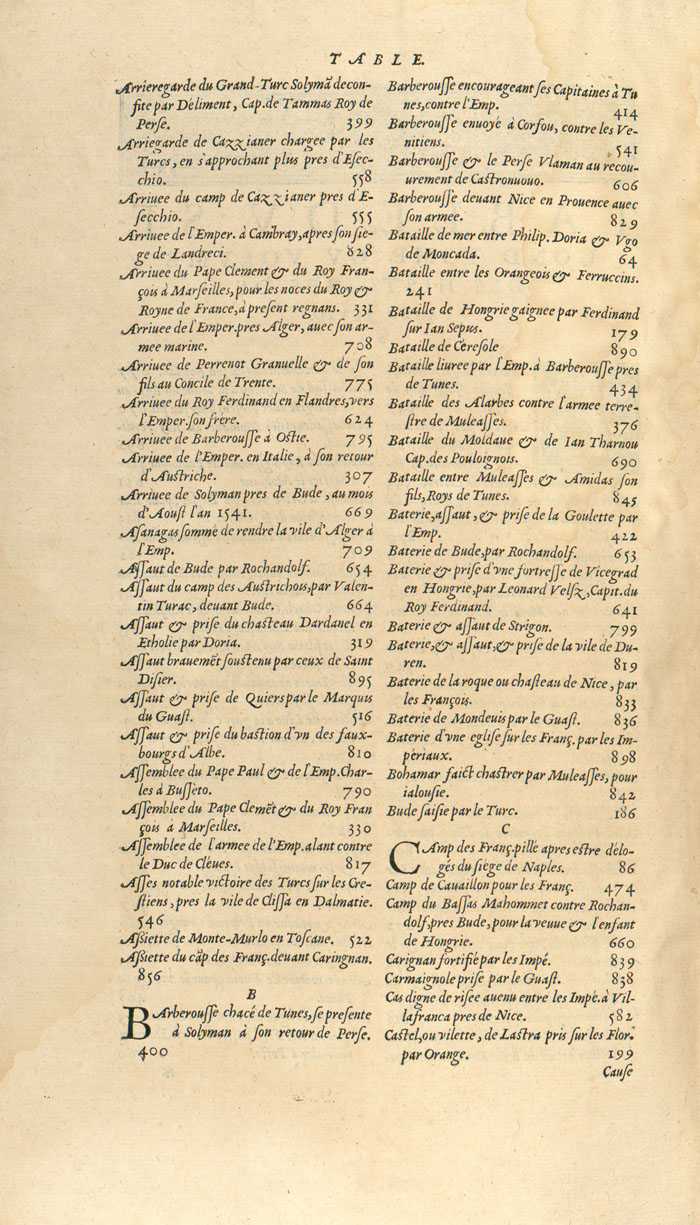 TABLE.
Arrieregarde du Grand-Turc Solymã decon-
fite par Deliment, Cap. de Tammas Roy de
Perse. 399
Arriegarde de Cazzianer chargee par les
Turcs, en s'approchant plus pres d'Esec-
chio. 558
Arriuee du camp de Cazzianer pres d'E-
secchio. 555
Arriuee de l'Emper. à Cambray, apres son sie-
ge de Landreci. 828
Arriuee du Pape Clement & du Roy Fran-
çois à Marseilles, pour les noces du Roy &
Royne de France, à present regnans. 331
Arriuee de l'Emper. pres Alger, auec son ar-
mee marine. 708
Arriuee de Perrenot Granuelle & de son
fils au Concile de Trente. 775
Arriuee du Roy Ferdinand en Flandres, vers
l'Emper. son frere. 624
Arriuee de Barberousse à Ostie. 795
Arriuee de l'Emper. en Italie, à son retour
d'Austriche. 307
Arriuee de Solyman pres de Bude, au mois
d'Aoust l'an 1541. 669
Asanagas sommé de rendre la vile d'Alger à
l'Emp. 709
Assaut de Bude par Rochandolf. 654
Assaut du camp des Austrichois, par Valen-
tin Turac, deuant Bude. 664
Assaut & prise du chasteau Dardanel en
Etholie par Doria. 319
Assaut brauemẽt soustenu par ceux de Saint
Disier. 895
Assaut & prise de Quiers par le Marquis
du Guast. 516
Assaut & prise du bastion d'vn des faux-
bourgs d'Albe. 810
Assemblee du Pape Paul & de l'Emp. Char-
les à Busseto. 790
Assemblee du Pape Clemẽt & du Roy Fran
çois à Marseilles. 330
Assemblee de l'armee de l'Emp. alant contre
le Duc de Cleues. 817
Asses notable victoire des Turcs sur les Cre-
stiens, pres la vile de Clissa en Dalmatie.
546
Assiette de Monte-Murlo en Toscane. 522
Assiette du cãp des Franç. deuant Caringnan.
856
B
BArberousse chacé de Tunes, se presente
à Solyman à son retour de Perse.
400
Barberousse encourageant ses Capitaines à Tu
nes, contre l'Emp. 414
Barberousse enuoyé à Corfou, contre les Ve-
nitiens. 541
Barberousse & le Perse Vlaman au recou-
urement de Castronuouo. 606
Barberousse deuant Nice en Prouence auec
son armee. 829
Bataille de mer entre Philip. Doria & Vgo
de Moncada. 64
Bataille entre les Orangeois & Ferruccins.
241
Bataille de Hongrie gaignee par Ferdinand
sur Ian Sepus. 179
Bataille de Ceresole 890
Bataille liuree par l'Emp. à Barberousse pres
de Tunes. 434
Bataille des Alarbes contre l'armee terre-
stre de Muleasses. 376
Bataille du Moldaue & de Ian Tharnou
Cap. des Pouloignois. 690
Bataille entre Muleasses & Amidas son
fils, Roys de Tunes. 845
Baterie, assaut, & prise de la Goulette par
l'Emp. 422
Baterie de Bude, par Rochandolf. 653
Baterie & prise d'vne fortresse de Vicegrad
en Hongrie, par Leonard Velsz, Capit. du
Roy Ferdinand. 641
Baterie & assaut de Strigon. 799
Baterie, & assaut, & prise de la vile de Du-
ren. 819
Baterie de la roque ou chasteau de Nice, par
les François. 833
Baterie de Mondeuis par le Guast. 836
Baterie d'vne eglise sur les Franç. par les Im-
periaux. 898
Bohamar faict chastrer par Muleasses, pour
ialousie. 842
Bude saisie par le Turc. 186
C
CAmp des Franç. pillé apres estre délo-
gés du siege de Naples. 86
Camp de Cauaillon pour les Franç. 474
Camp du Bassas Mahommet contre Rochan-
dolf, pres Bude, pour la veuue & l'enfant
de Hongrie. 660
Carignan fortifié par les Impé. 839
Carmaignole prise par le Guast. 838
Cas digne de risee auenu entre les Impé. à Vil-
lafranca pres de Nice. 582
Castel, ou vilette, de Lastra pris sur les Flor.
par Orange. 199
Cause